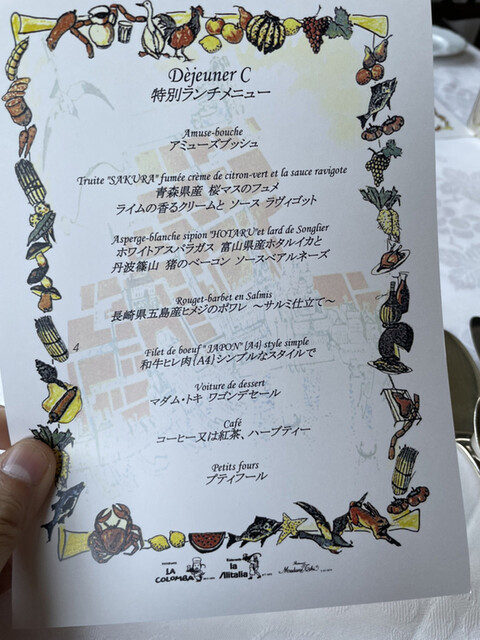 Dèjeuner C
特別ランチメニュー
Amuse-bouche
アミューズブッシュ
Truite "SAKURA" fumée crème de citron-vert et la sauce ravigote
青森県産 桜マスのフュメ
ライムの香るクリームと ソース ラヴィゴット
Asperge-blanche sipion "HOTARU"et lard de Songlier
ホワイトアスパラガス 富山県産ホタルイカと
丹波篠山 猪のベーコン ソースベアルネーズ
Rouget-barbet en Salmis
長崎県五島産ヒメジのポワレ ～サルミ仕立て～
4
Filet de boeuf "JAPON" {A4} style simple
和牛ヒレ肉{A4}シンプルなスタイルで
Voiture de dessert
マダム・トキ ワゴンデセール
Café
コーヒー又は紅茶、ハーブティー
Petits fours
プティフール
LA COLOMBA
la Allitalia
Madame Toki